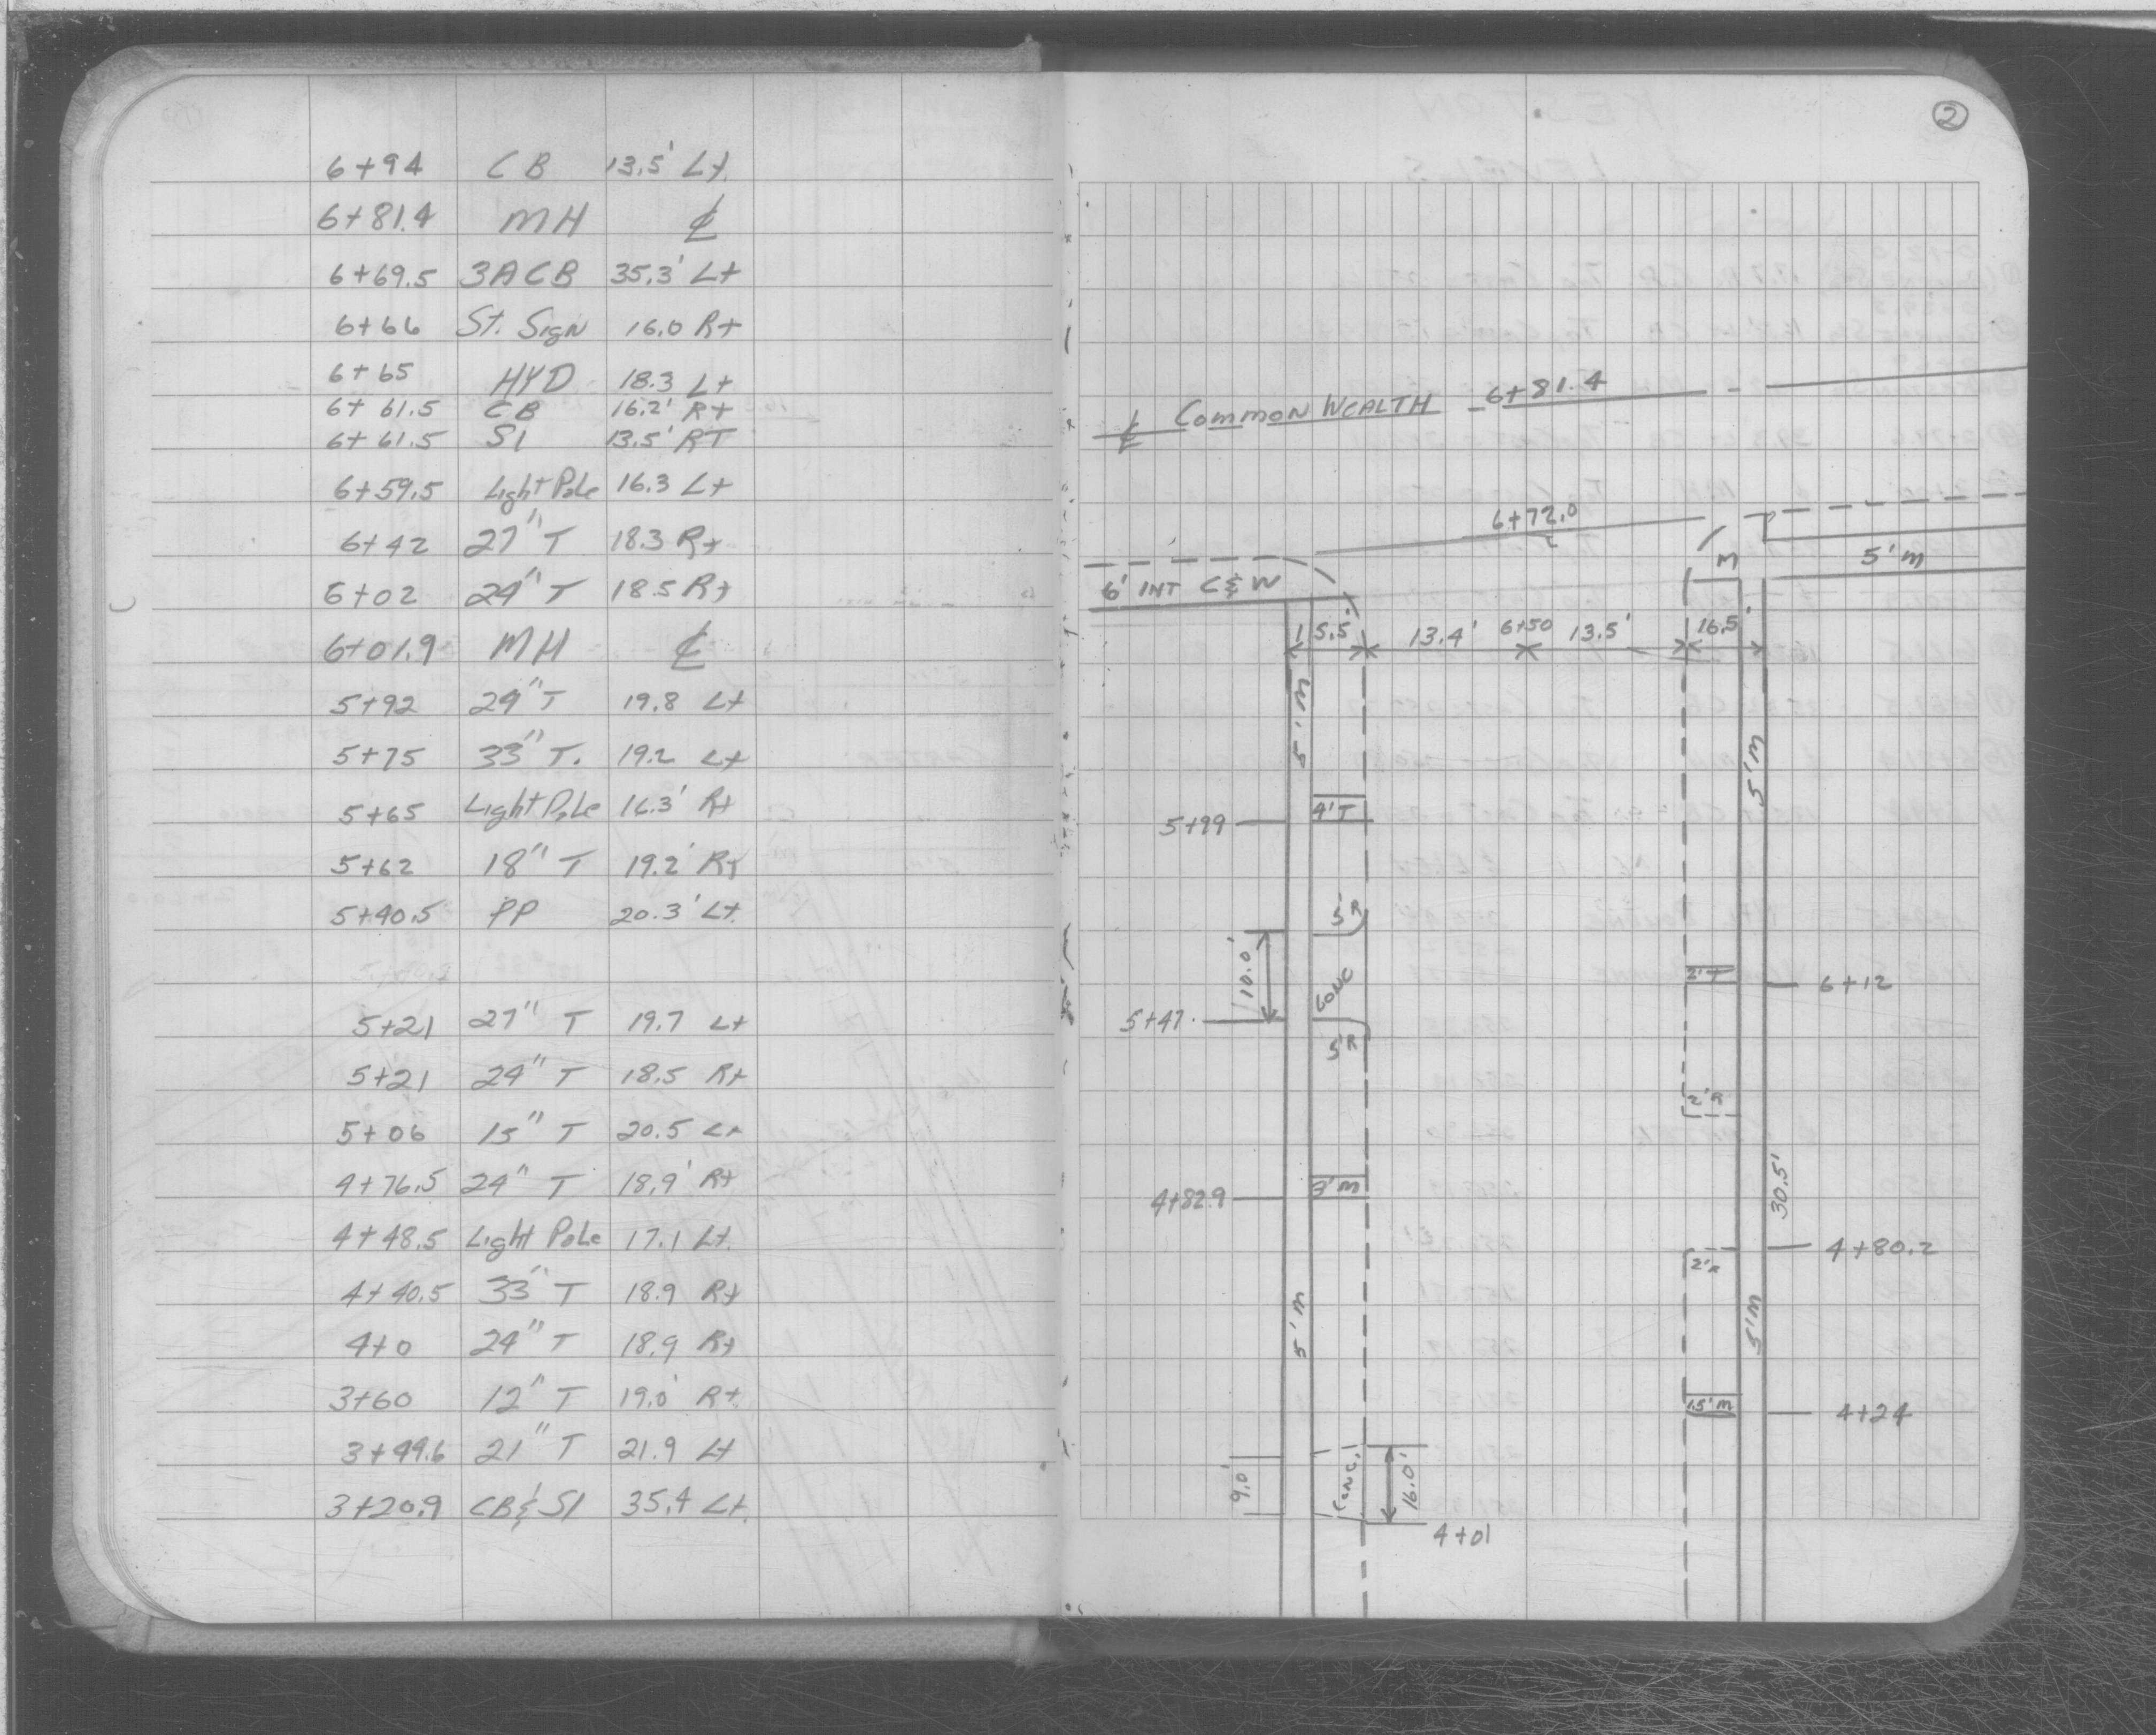 6+94 CB 13.5' Lt.
6+81.4 MH ℄
6+69.5 3ACB 35.3' Lt
6+66 St. Sign 16.0 Rt
6+65 HYD 18.3 Lt
6+61.5 CB 16.2' Rt
6+61.5 SI 13.5' RT
6+59.5 Light Pole 16.3 Lt
6+42 27" T 18.3 Rt
6+02 24" T 18.5 Rt
6+01.9 MH ℄
5+92 24" T 19.8 Lt
5+75 33" T. 19.2 Lt
5+65 Light Pole 16.3' Rt
5+62 18" T 19.2' Rt
5+40.5 PP 20.3' Lt.
5+21 27" T 19.7 Lt
5+21 24" T 18.5 Rt
5+06 15" T 20.5 Lt
4+76.5 24" T 18.9' Rt
4+48.5 Light Pole 17.1 Lt.
4+40.5 33" T 18.9 Rt
4+0 24" T 18.9 Rt
3+60 12" T 19.0' Rt.
3+49.6 21" T 21.9 Lt
3+20.9 CB & SI 35.4 Lt.
2
℄ Common Wealth 6+81.4
6+72.0
M 5' M
6' INT C & W
5.5' 13.4' 6+50 13.5' 16.5'
5' M
5' M
5+99 4' T
5'R
10.0' CONC
2' T 6+12
5+47.
5'R
2'R
30.5'
4+82.9 3' M
4+80.2
2'R
5' M
5' M
1.5' M 4+24
9.0' CONC. 16.0'
4+01